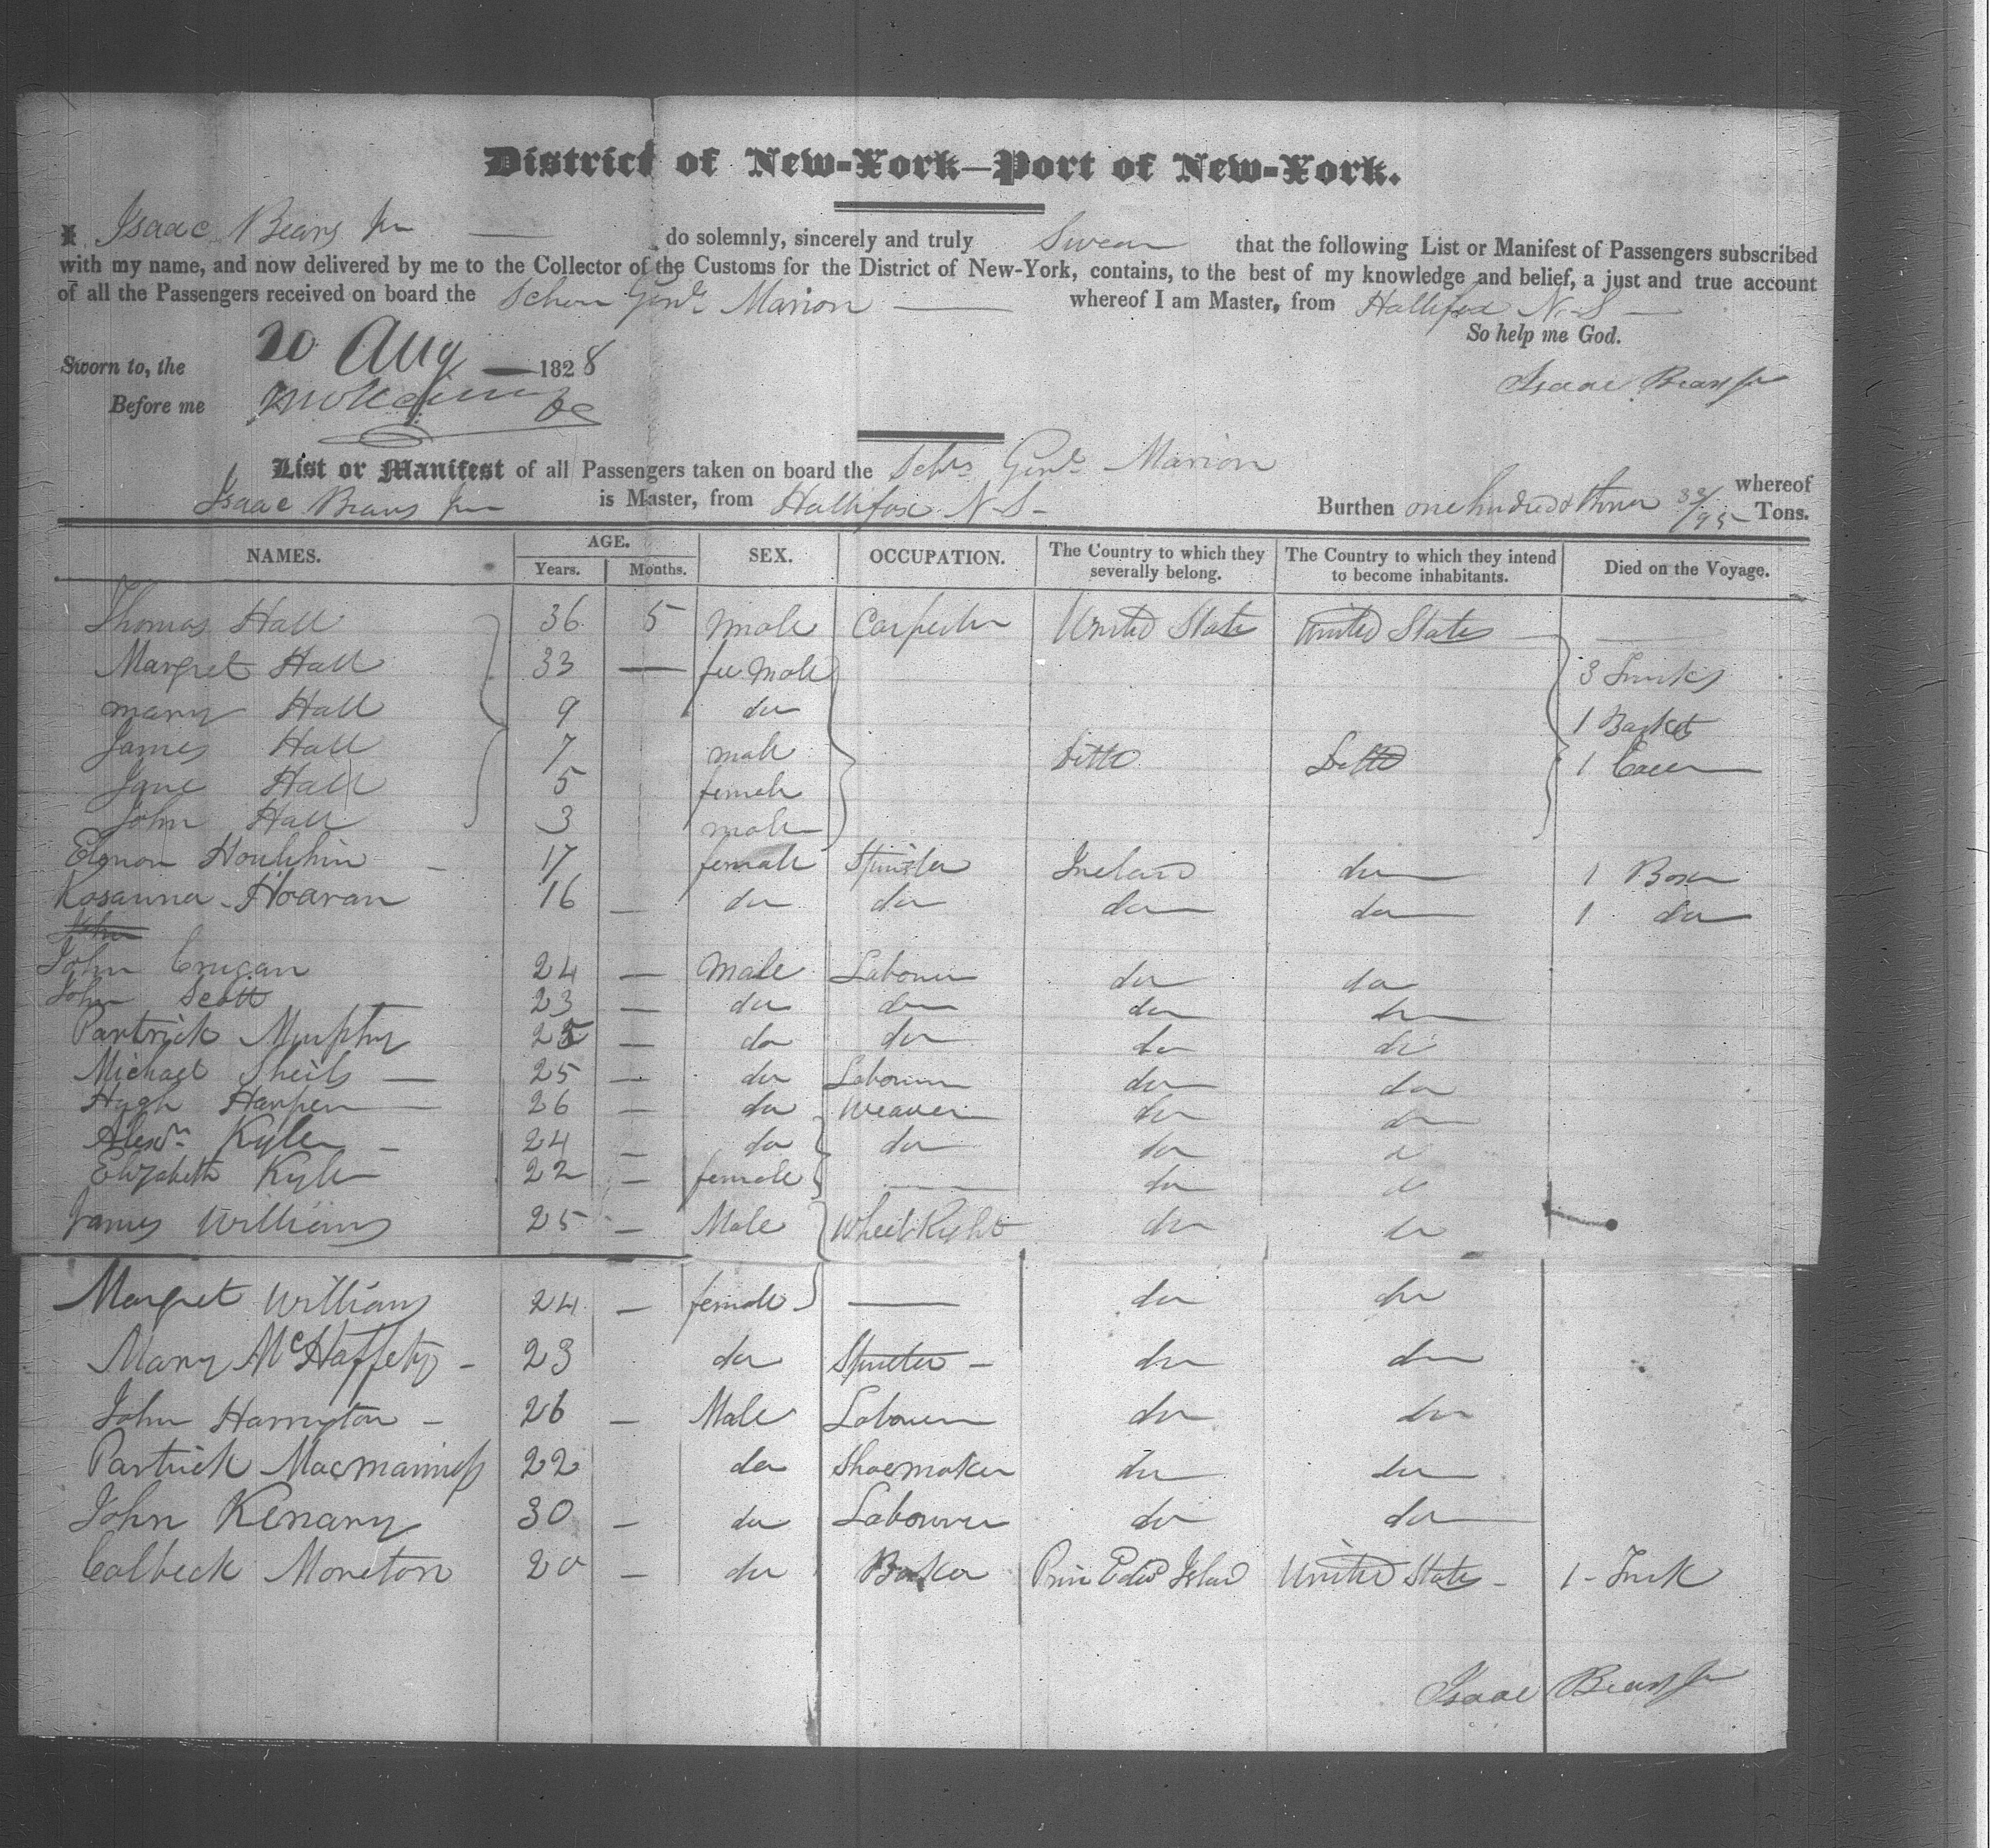 District of New-York—Port of New-York.
I, Isaac Bears Jun — do solemnly, sincerely and truly Swear that the following List or Manifest of Passengers subscribed
with my name, and now delivered by me to the Collector of the Customs for the District of New-York, contains, to the best of my knowledge and belief, a just and true account
of all the Passengers received on board the Schon Genl Marion — whereof I am Master, from Hallifax N-S —
So help me God.
Sworn to, the 20 Aug — 1828
Isaac Bears Jun
Before me
List or Manifest of all Passengers taken on board the Schr Genl Marion whereof
Isaac Bears Jun is Master, from Hallifax N-S- Burthen one hundred & three 33/95 Tons.
NAMES. AGE. SEX. OCCUPATION. The Country to which they severally belong. The Country to which they intend to become inhabitants. Died on the Voyage.
Years. Months.
Thomas Hall 36 5 Male Carpenter United States United States —
Margret Hall 33 — fee Male 3 Trunks
Mary Hall 9 do 1 Basket
James Hall 7 male Ditto Ditto 1
Jane Hall 5 female
John Hall 3 male
Elenon Houlihin - 17 female Spinster Ireland do 1 Box
Rosanna Hoavan 16 — do do do do 1 do
John
John Crugan 24 — Male Labourer do do
John Scott 23 — do do do do
Partrick Murphy 25 — do do do do
Michael Sheils — 25 — do Labourer do do
Hugh Harper 26 — do Weaver do do
Alexdr Kyle - 24 — do do do d
Elizabeth Kyle 22 — female — do d
James Williams 25 — Male Wheel Right do do
Margret Williams 24 — female — do do
Mary McHaffety - 23 do Spinster - do do
John Harrington - 26 — Male Labourer do do
Partrick Macmanness 22 do Shoemaker do do
John Kenary 30 — do Labourer do do
Colbeck Moreton 20 — do Baker Prin Edwd Island United States - 1 - Trunk
Isaac Bears Jun